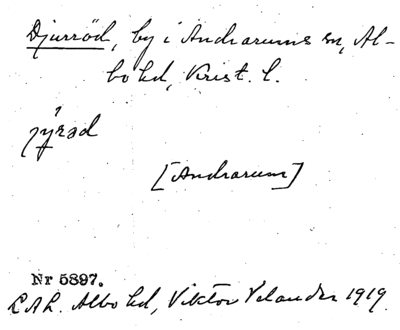 Djurröd, by i Andrarums sn, Al-
bo hd, Krist. l.
jýrəd
[Andrarum]
Nr 5897.
LAL. Albo hd, Viktor Velander 1919.